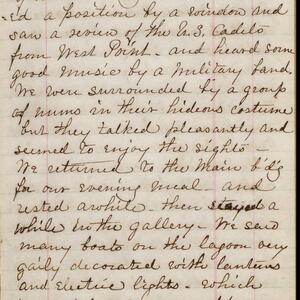 ed a position by a window and
saw a review of the U.S. Cadets
from West Point - and heard some
good music by a military band.
We were surrounded by a group
of nuns in their hideous costume
but they talked pleasantly and
seemed to enjoy the sights -
We returned to the Main b'd'g
for our evening meal - and
rested awhile - then stayed a
while in the gallery - We saw
many boats on the lagoon very
gaily decorated with lanterns
and electric lights - which